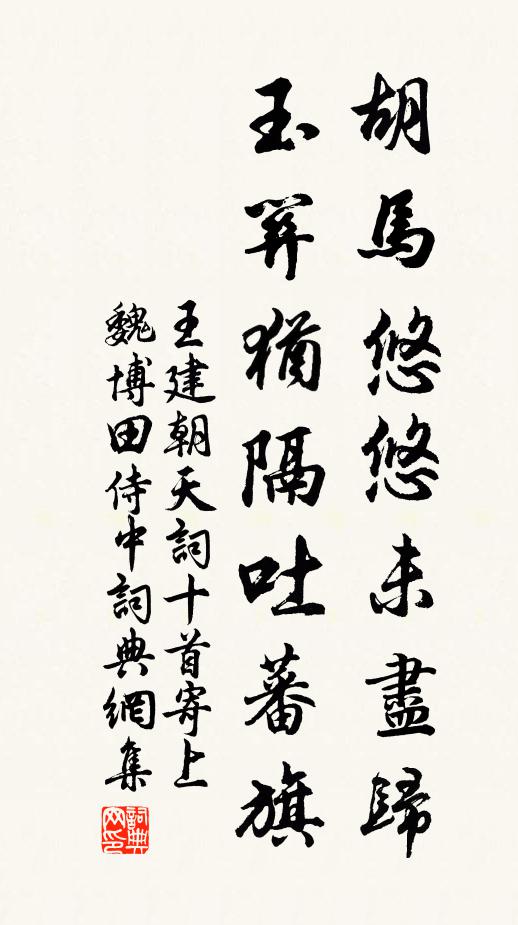 胡馬悠悠未盡歸
玉關猶隔吐蕃旗
王建朝天詞十首寄上
魏博田侍中詞典網集
詞典
网印